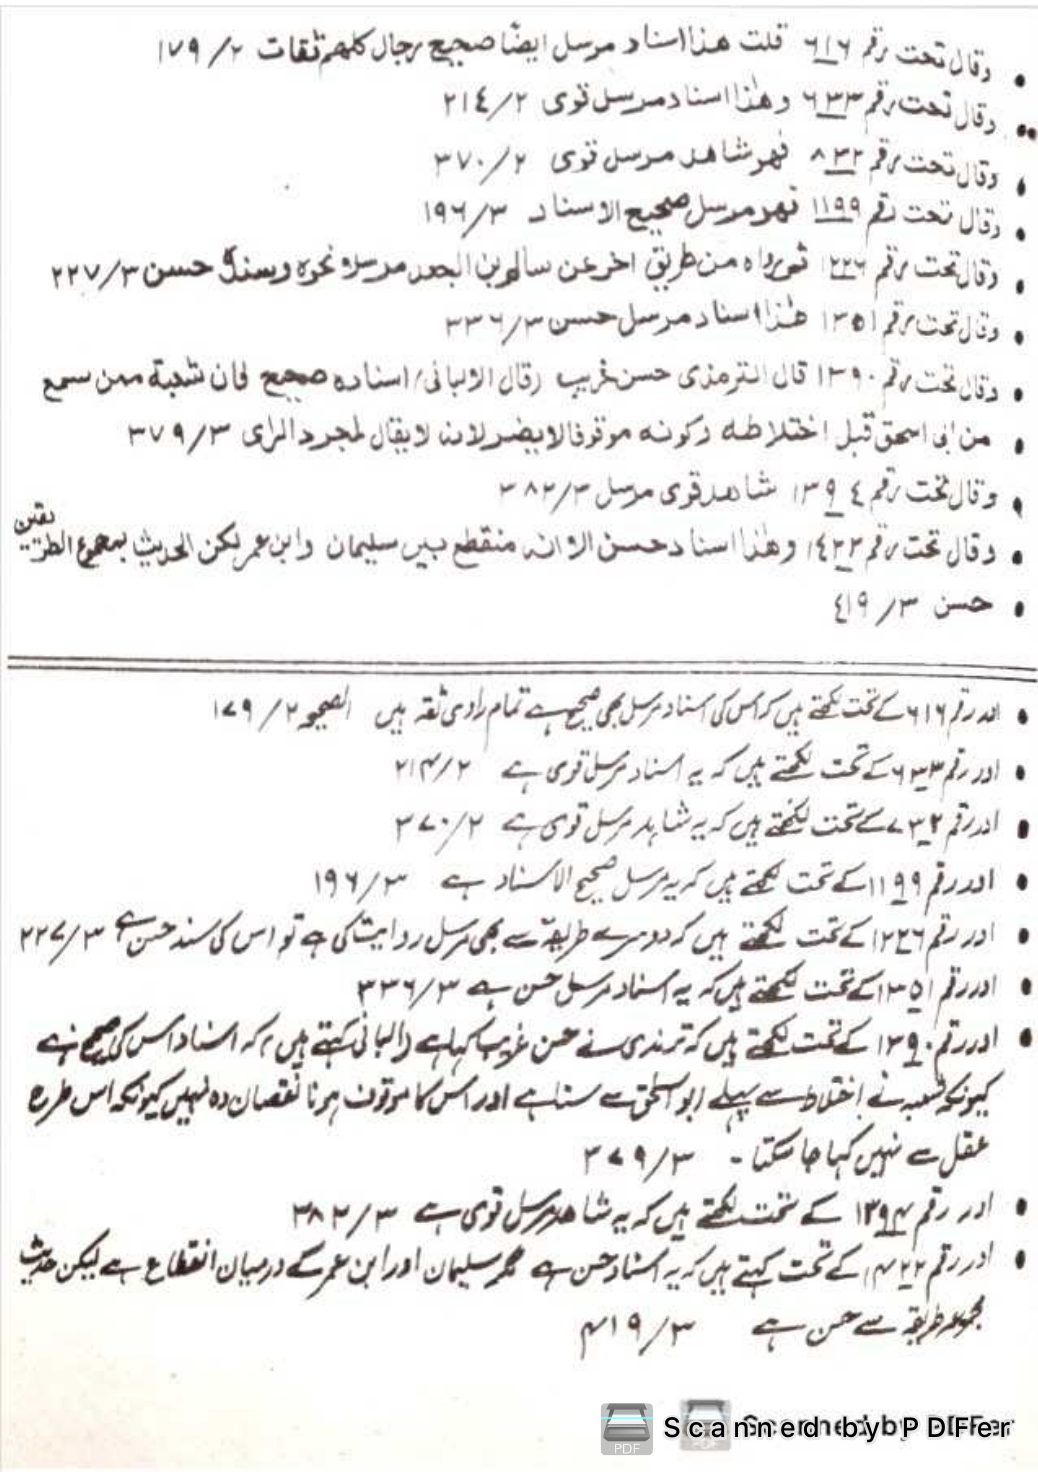 • وقال تحت رقم ٦١٦ قلت هذا اسناد مرسل ايضًا صحيح رجال كلهم ثقات ٢/ ١٧٩
•• وقال تحت رقم ٦٣٣ وهذا اسناد مرسل قوى ٢/ ٢١٤
• وقال تحت رقم ٨٣٢ فهو شاهد مرسل قوى ٢/ ٣٧٠
• وقال تحت رقم ١١٩٩ فهو مرسل صحيح الاسناد ٣/ ١٩٦
• وقال تحت رقم ١٢٢٦ ثم رواه من طريق اخر عن سالم بن الجعد مرسلا نحوه وسنده حسن ٣/ ٢٢٧
• وقال تحت رقم ١٣٥١ هذا اسناد مرسل حسن ٣/ ٣٣٦
• وقال تحت رقم ١٣٩٠ قال الترمذى حسن غريب وقال الالبانى/ اسناده صحيح فان شعبة ممن سمع
• من ابى اسحق قبل اختلاطه وكونه موقوفا لا يضر لانه لا يقال لمجرد الراى ٣/ ٣٧٩
• وقال تحت رقم ١٣٩٤ شاهد قوى مرسل ٣/ ٣٨٢
• وقال تحت رقم ١٤٢٢ وهذا اسناد حسن الا انه منقطع بين سليمان وابن عمر لكن الحديث بمجموع الطريقين
• حسن ٣/ ٤١٩
• اور رقم ٦١٦ کے تحت لکھتے ہیں کہ اس کی اسناد مرسل بھی صحیح ہے تمام راوی ثقہ ہیں الصحیحہ ٢/ ١٧٩
• اور رقم ٦٣٣ کے تحت لکھتے ہیں کہ یہ اسناد مرسل قوی ہے ٢/ ٢١۴
• اور رقم ٧٣٢ کے تحت لکھتے ہیں کہ یہ شاہد مرسل قوی ہے ٢/ ٣٧٠
• اور رقم ١١٩٩ کے تحت لکھتے ہیں کہ یہ مرسل صحیح الاسناد ہے ٣/ ١٩٦
• اور رقم ١٢٢٦ کے تحت لکھتے ہیں کہ دوسرے طریقہ سے بھی مرسل روایت کی ہے تو اس کی سند حسن ہے ٣/ ٢٢٧
• اور رقم ١٣٥١ کے تحت لکھتے ہیں کہ یہ اسناد مرسل حسن ہے ٣/ ٣٣٦
• اور رقم ١٣٩٠ کے تحت لکھتے ہیں کہ ترمذی نے حسن غریب کہا ہے (البانی کہتے ہیں) کہ اسناد اس کی صحیح ہے
کیونکہ شعبہ نے اختلاط سے پہلے ابو اسحق سے سنا ہے اور اس کا موقوف ہونا نقصان دہ نہیں کیونکہ اس طرح
عقل سے نہیں کہا جا سکتا - ٣/ ٣٧٩
• اور رقم ١٣٩۴ کے تحت لکھتے ہیں کہ یہ شاھد مرسل قوی ہے ٣/ ٣٨٢
• اور رقم ١۴٢٢ کے تحت کہتے ہیں کہ یہ اسناد حسن ہے مگر سلیمان اور ابن عمر کے درمیان انقطاع ہے لیکن حدیث
مجموعہ طریقہ سے حسن ہے ٣/ ۴١٩
Scanned by PDFFer